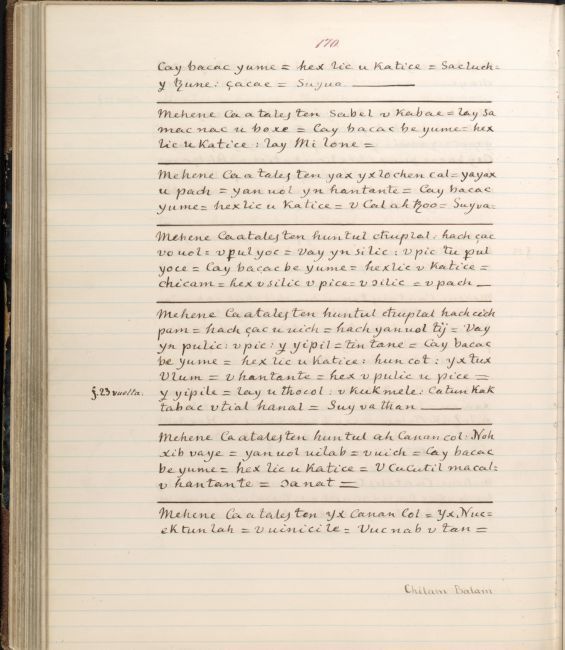 170
Cay bacac yume = hex lic u Katice = Sacluch=
y ꜩune: çacae = Suyua
Mehene Ca a tales ten Sabel v Kabae = lay Sa
mac nac u boxe = Cay bacac be yume = hex
lic u Katice: lay Mi lone =
Mehene Ca a tales ten yax yxlochen cal = yayax
u pach = yan uol yn hantante = Cay bacac
yume = hex lic u Katice = v Cal ah ꜩoo = Suyva=
Mehene Ca a tales ten huntul chuplal: hach çac
vo uol = v pul yoc = Vay yn silic: v pic tu pul
yoce = Cay bacac be yume = hex lic v Katice =
chicam = hex v silic v pice = v silic = v pach
Mehene Ca a tales ten huntul chuplal hach cich
pam = hach çac u uich = hach yan uol tij = Vay
yn pulic: v pic: y yipil = tin tane = Cay bacac
be yume = hex lic u Katice: hun cot: yx tux
Vlum = v hantante = hex v pulic u pice =
f. 23 vuelta.
y yipile = lay u thocol: v KuKmele: Catun KaK
tabac v tial hanal = Suy va than
Mehene Ca a tales ten huntul ah Canan col: Noh
xib vaye = yan uol uilab = v uich = Cay bacac
be yume = hex lic u Katice = V Cucutil macal=
v hantante = Sa nat =
Mehene Ca a tales ten yx Canan Col = yx, Nuc=
eK tun lah = v uinicile = Vuc nab v tan =
Chilam Balam